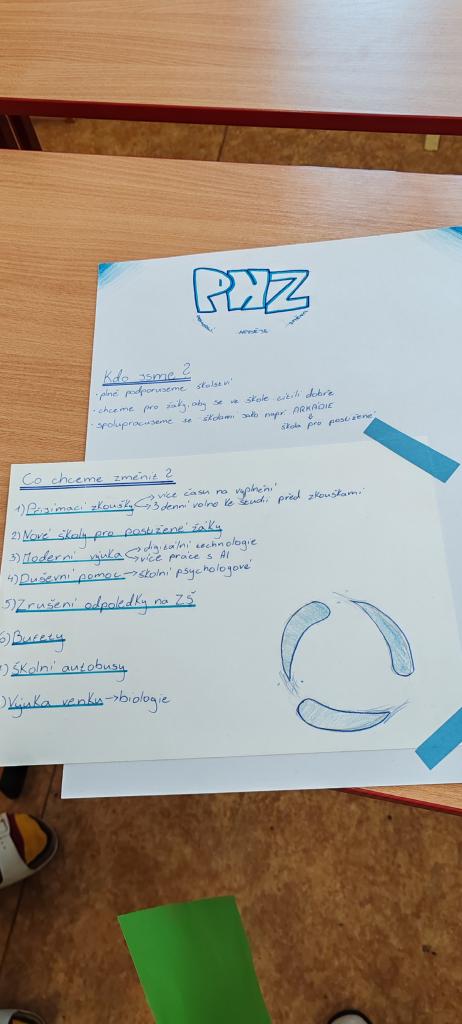 PNZ
NADĚJE
Kdo jsme?
• plně podporujeme školství
• chceme pro žáky, aby se ve škole cítili dobře
• spolupracujeme se školami jako např. ARKADIE
škola pro postižené
Co chceme změnit?
1) Přijímací zkoušky → více času na vyplnění
→ 3 denní volno ke studii před zkouškami
2) Nové školy pro postižené žáky
3) Moderní výuka → digitální technologie
→ více práce s AI
4) Duševní pomoc → školní psychologové
5) Zrušení odpoledky na ZŠ
6) Bufety
7) Školní autobusy
) Výuka venku → biologie